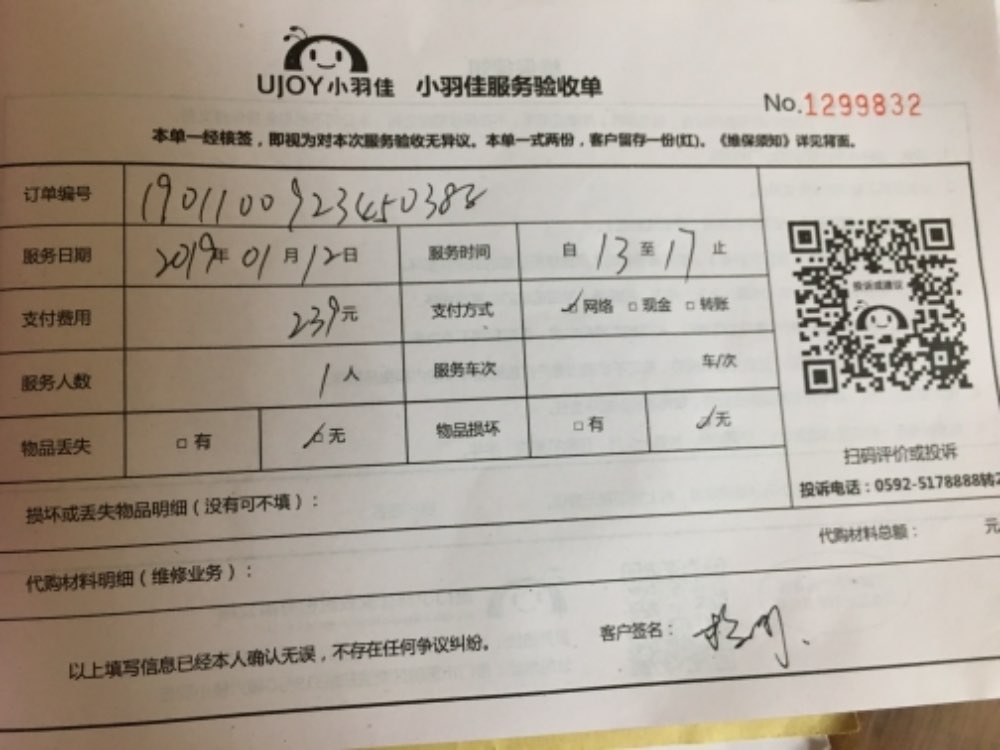 UJOY小羽佳 小羽佳服务验收单
No.1299832
本单一经核签，即视为对本次服务验收无异议。本单一式两份，客户留存一份(红)。《维保须知》详见背面。
订单编号
服务日期 2019年 01月 12日 服务时间 自 13 至 17 止
支付费用 239元 支付方式 ☑网络 □现金 □转账
服务人数 1人 服务车次 车/次
物品丢失 □有 ☑无 物品损坏 □有 ☑无
投诉或建议
扫码评价或投诉
投诉电话：0592-5178888转2
损坏或丢失物品明细（没有可不填）：
代购材料总额： 元
代购材料明细（维修业务）：
以上填写信息已经本人确认无误，不存在任何争议纠纷。 客户签名：